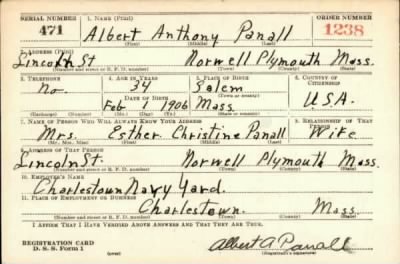 SERIAL NUMBER 1. NAME (Print) ORDER NUMBER
471 Albert Anthony Panall 1238
(First) (Middle) (Last)
2. ADDRESS (Print)
Lincoln St Norwell Plymouth Mass.
(Number and street or R. F. D. number) (Town) (County) (State)
3. TELEPHONE 4. AGE IN YEARS 5. PLACE OF BIRTH 6. COUNTRY OF CITIZENSHIP
No. 34 Salem
DATE OF BIRTH (Town or county)
Feb 1 1906 Mass. U.S.A.
(Exchange) (Number) (Mo.) (Day) (Yr.) (State or country)
7. NAME OF PERSON WHO WILL ALWAYS KNOW YOUR ADDRESS 8. RELATIONSHIP OF THAT PERSON
Mrs. Esther Christine Panall Wife
(Mr., Mrs., Miss) (First) (Middle) (Last)
9. ADDRESS OF THAT PERSON
Lincoln St. Norwell Plymouth Mass.
(Number and street or R. F. D. number) (Town) (County) (State)
10. EMPLOYER'S NAME
Charlestown Navy Yard.
11. PLACE OF EMPLOYMENT OR BUSINESS
Charlestown. Mass.
(Number and street or R. F. D. number) (Town) (County) (State)
I AFFIRM THAT I HAVE VERIFIED ABOVE ANSWERS AND THAT THEY ARE TRUE.
REGISTRATION CARD
D. S. S. Form 1 Albert A Panall
(over) (Registrant's signature)